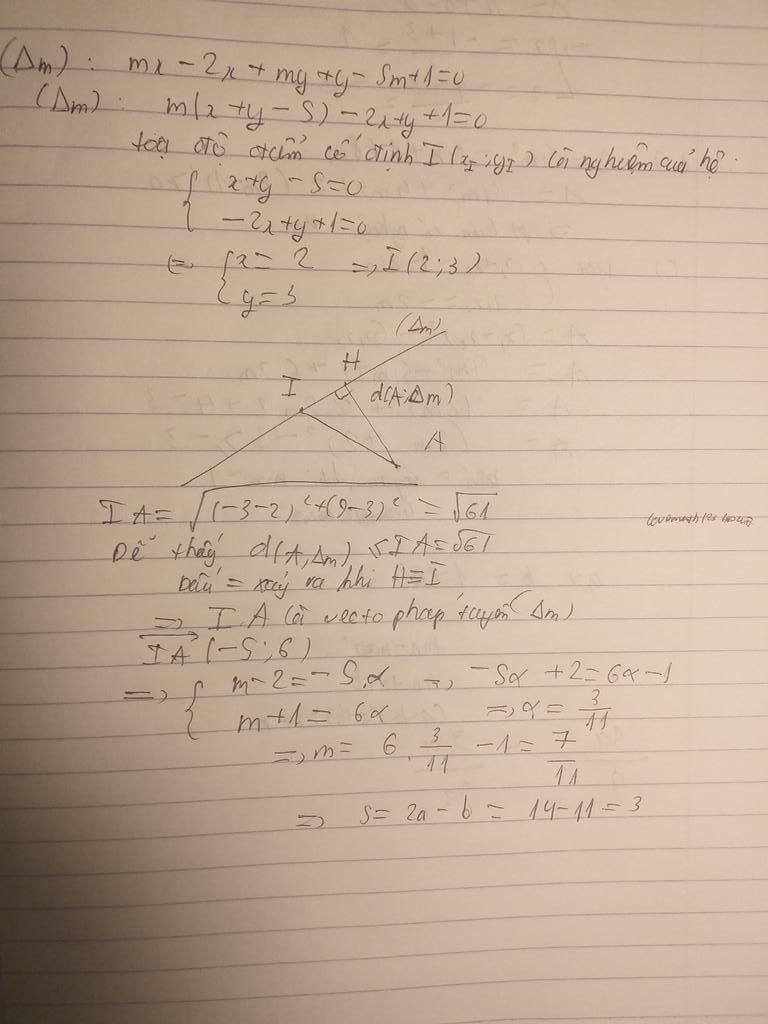 (Δm): mx − 2x + my + y − 5m + 1 = 0
(Δm): m(x + y − 5) − 2x + y + 1 = 0
toạ độ điểm cố định I(x_I; y_I) là nghiệm của hệ:
{ x + y − 5 = 0
−2x + y + 1 = 0
⇔ { x = 2 ⇒ I(2; 3)
y = 3
(Δm)
H
I d(A; Δm)
A
IA = √((−3−2)² + (9−3)²) = √61
Dễ thấy d(A, Δm) ≤ IA = √61
Dấu = xảy ra khi H ≡ I
⇒ IA là vecto pháp tuyến (Δm)
IA (−5; 6)
⇒ { m − 2 = −5.α ⇒ −5α + 2 = 6α − 1
m + 1 = 6α ⇒ α = 3/11
⇒ m = 6 . 3/11 − 1 = 7/11
⇒ S = 2a − b = 14 − 11 = 3